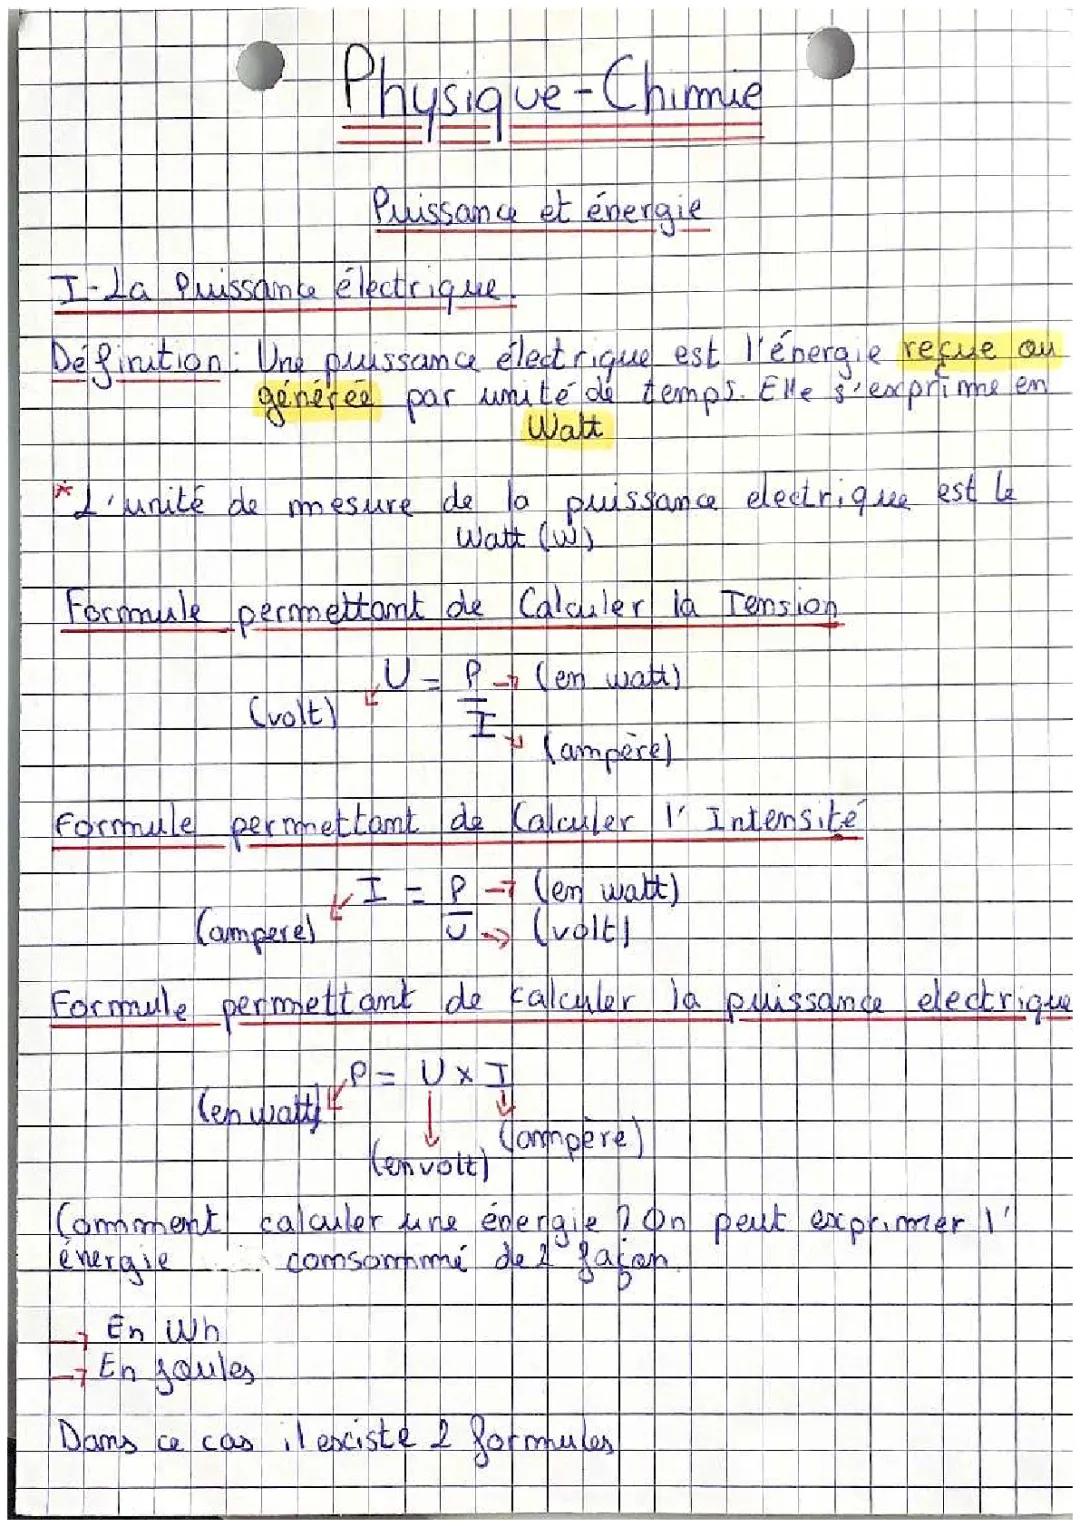 Physique-Chimie
Puissance et énergie
I-La Puissance électrique.
Définition: Une puissance électrique est l'énergie reçue ou
générée par unité de temps. Elle s'exprime en
Watt
*L'unité de mesure de la puissance electrique est le
Watt (W)
Formule permettant de Calculer la Tension
U = P → (en watt)
(volt)
I
(ampère)
Formule permettant de Calculer l'Intensité
I = P → (en watt)
(ampere) U → (volt)
Formule permettant de calculer la puissance electrique
P = U x I
(en watt)
(ampère)
(en volt)
Comment calculer une énergie ? On peut exprimer l'
énergie consommé de 2 façon
→ En Wh
→ En Joules
Dans ce cas il esciste 2 formules